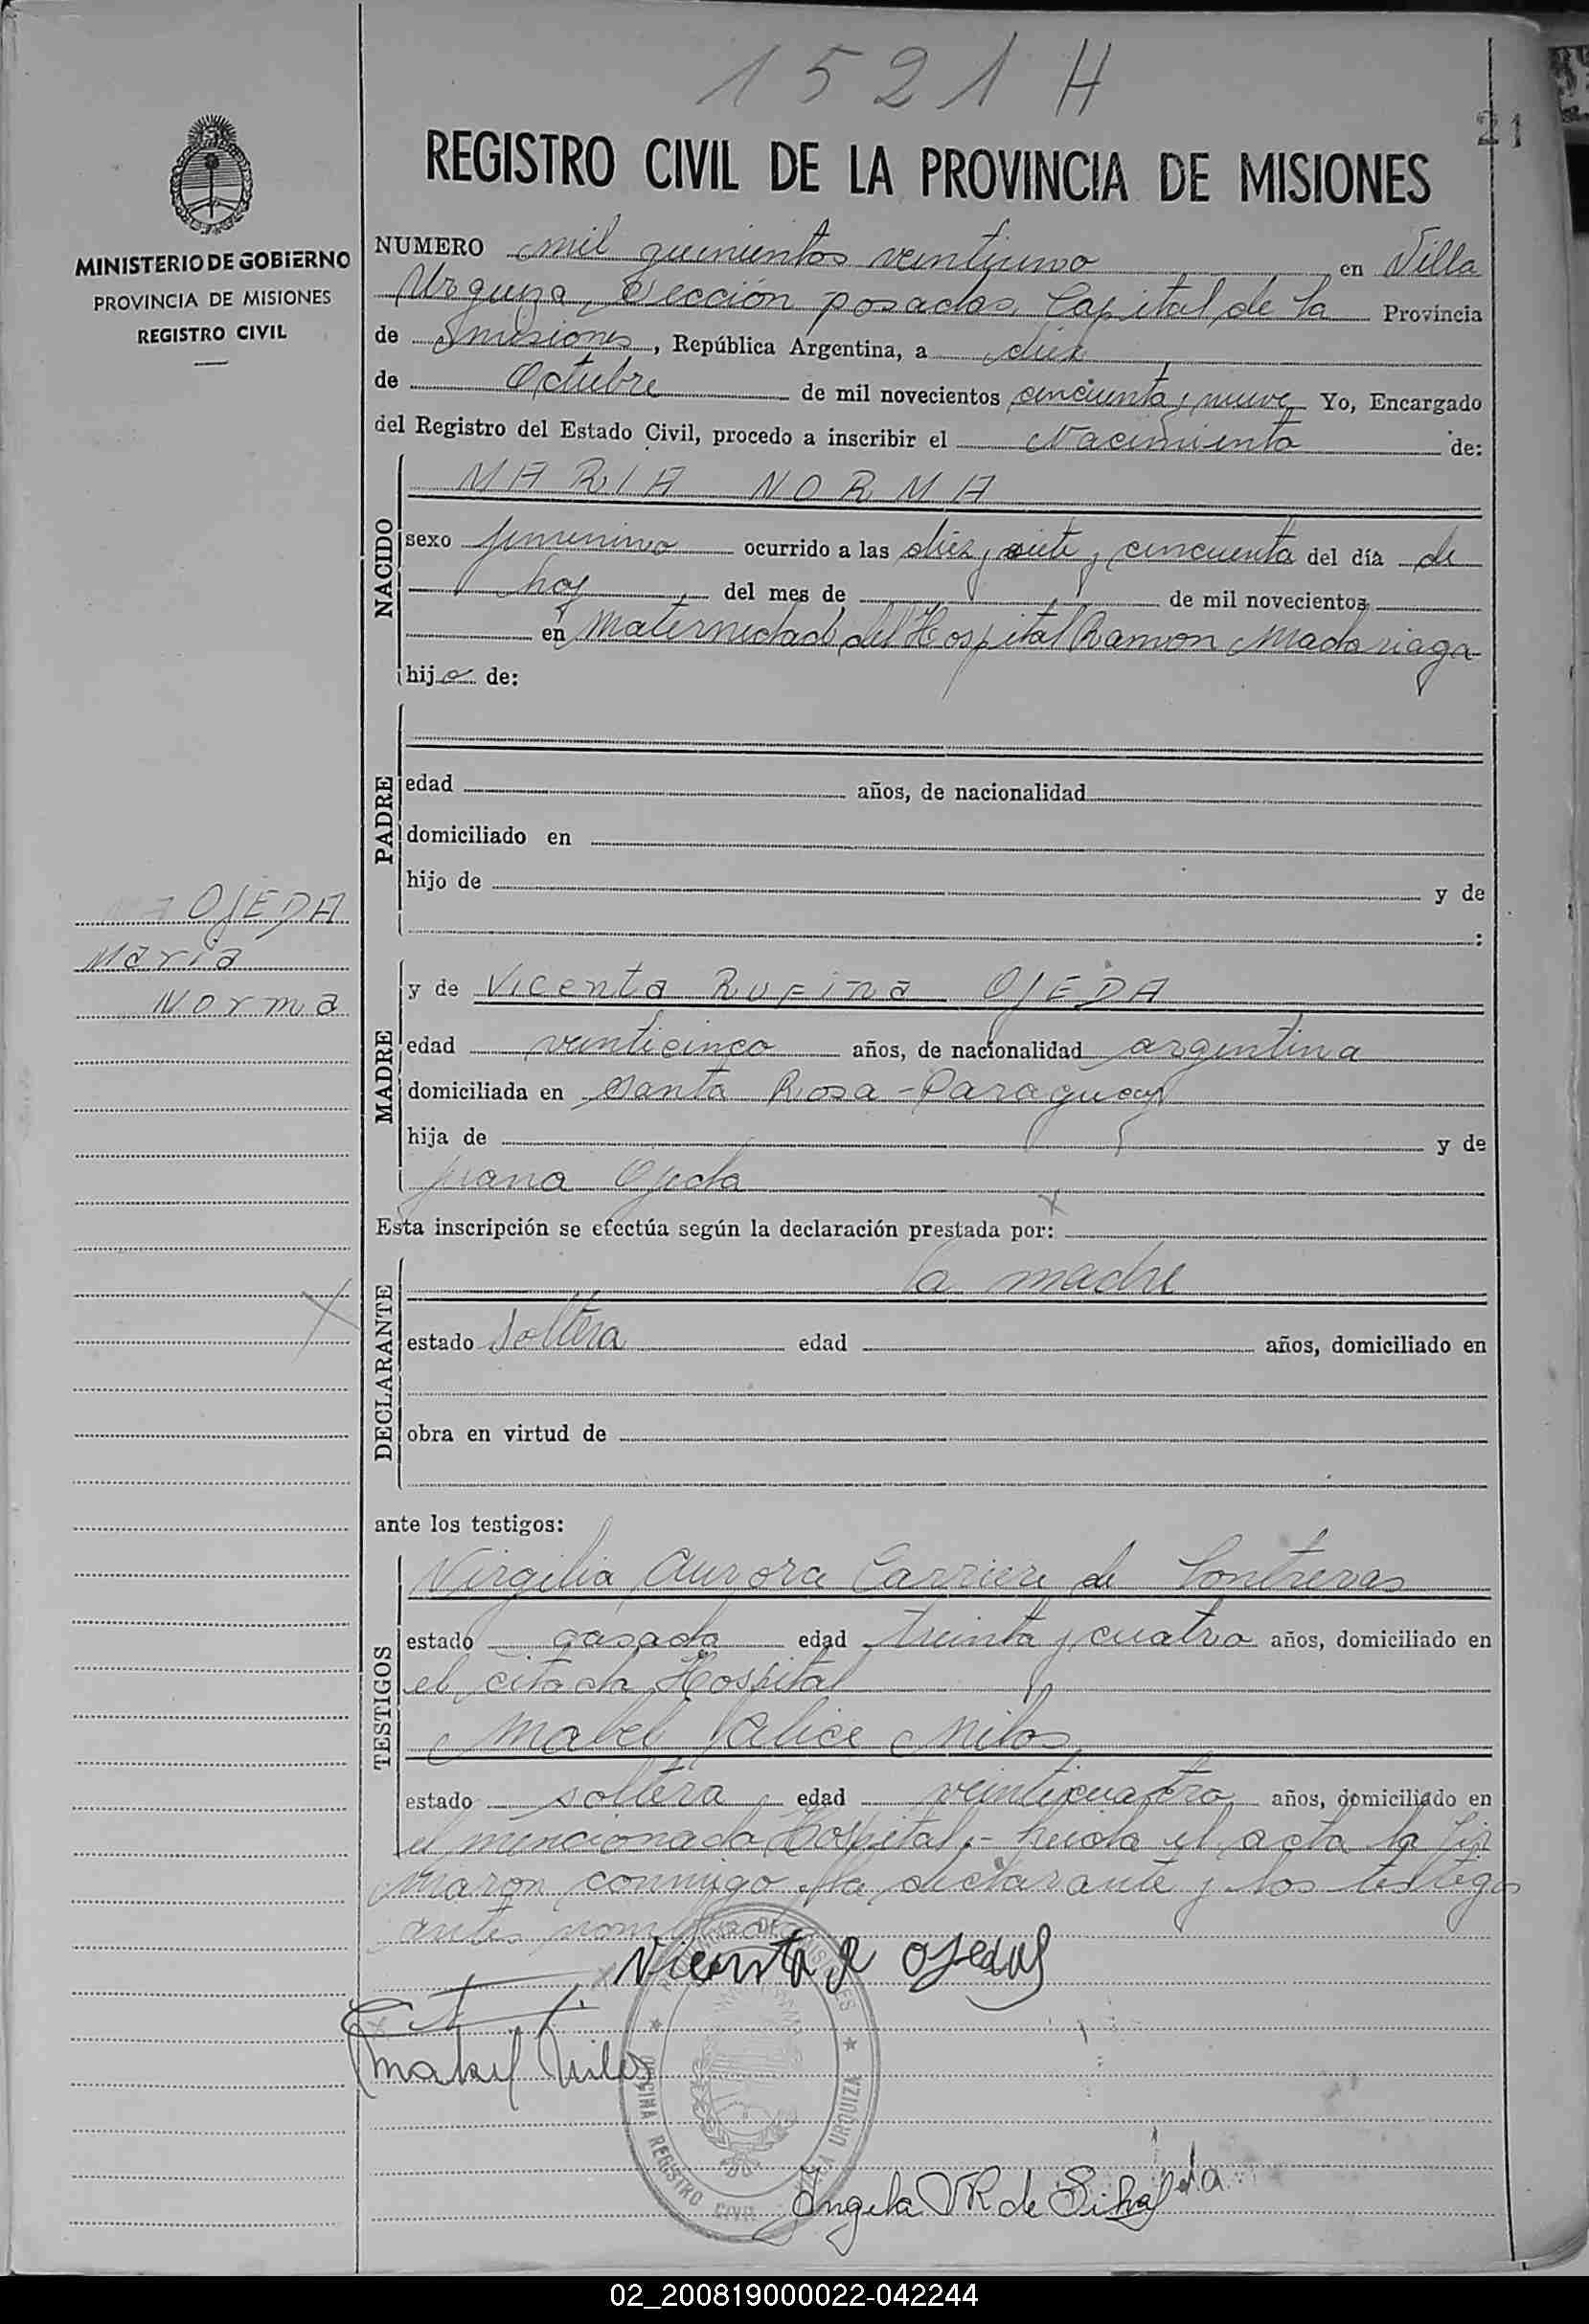 1521 H
21
REGISTRO CIVIL DE LA PROVINCIA DE MISIONES
MINISTERIO DE GOBIERNO
PROVINCIA DE MISIONES
REGISTRO CIVIL
NUMERO mil quinientos veintiuno en Villa
Urquiza, Sección posadas, Capital de la Provincia
de Misiones, República Argentina, a diez
de Octubre de mil novecientos cincuenta y nueve Yo, Encargado
del Registro del Estado Civil, procedo a inscribir el Nacimiento de:
NACIDO
MARIA NORMA
sexo femenino ocurrido a las diez y siete y cincuenta del día de
hoy del mes de de mil novecientos
en Maternidad del Hospital Ramon Madariaga
hija de:
PADRE
edad años, de nacionalidad
domiciliado en
hijo de y de
:
OJEDA
Maria
Norma
MADRE
y de Vicenta Rufina OJEDA
edad veinticinco años, de nacionalidad argentina
domiciliada en Santa Rosa - Paraguay
hija de y de
Juana Ojeda
Esta inscripción se efectúa según la declaración prestada por:
DECLARANTE
la madre
estado Soltera edad años, domiciliado en
obra en virtud de
ante los testigos:
TESTIGOS
Virgilia Aurora Carriere de Contreras
estado casada edad treinta y cuatro años, domiciliado en
el citado Hospital
Mabel Alice Milos
estado soltera edad veinticuatro años, domiciliado en
el mencionado Hospital.- Leida el acta la fir
maron conmigo la declarante y los testigos
antes
Vicenta R Ojeda
Mabel Milos
OFICINA REGISTRO CIVIL VILLA URQUIZA
Angela VR de
02_200819000022-042244